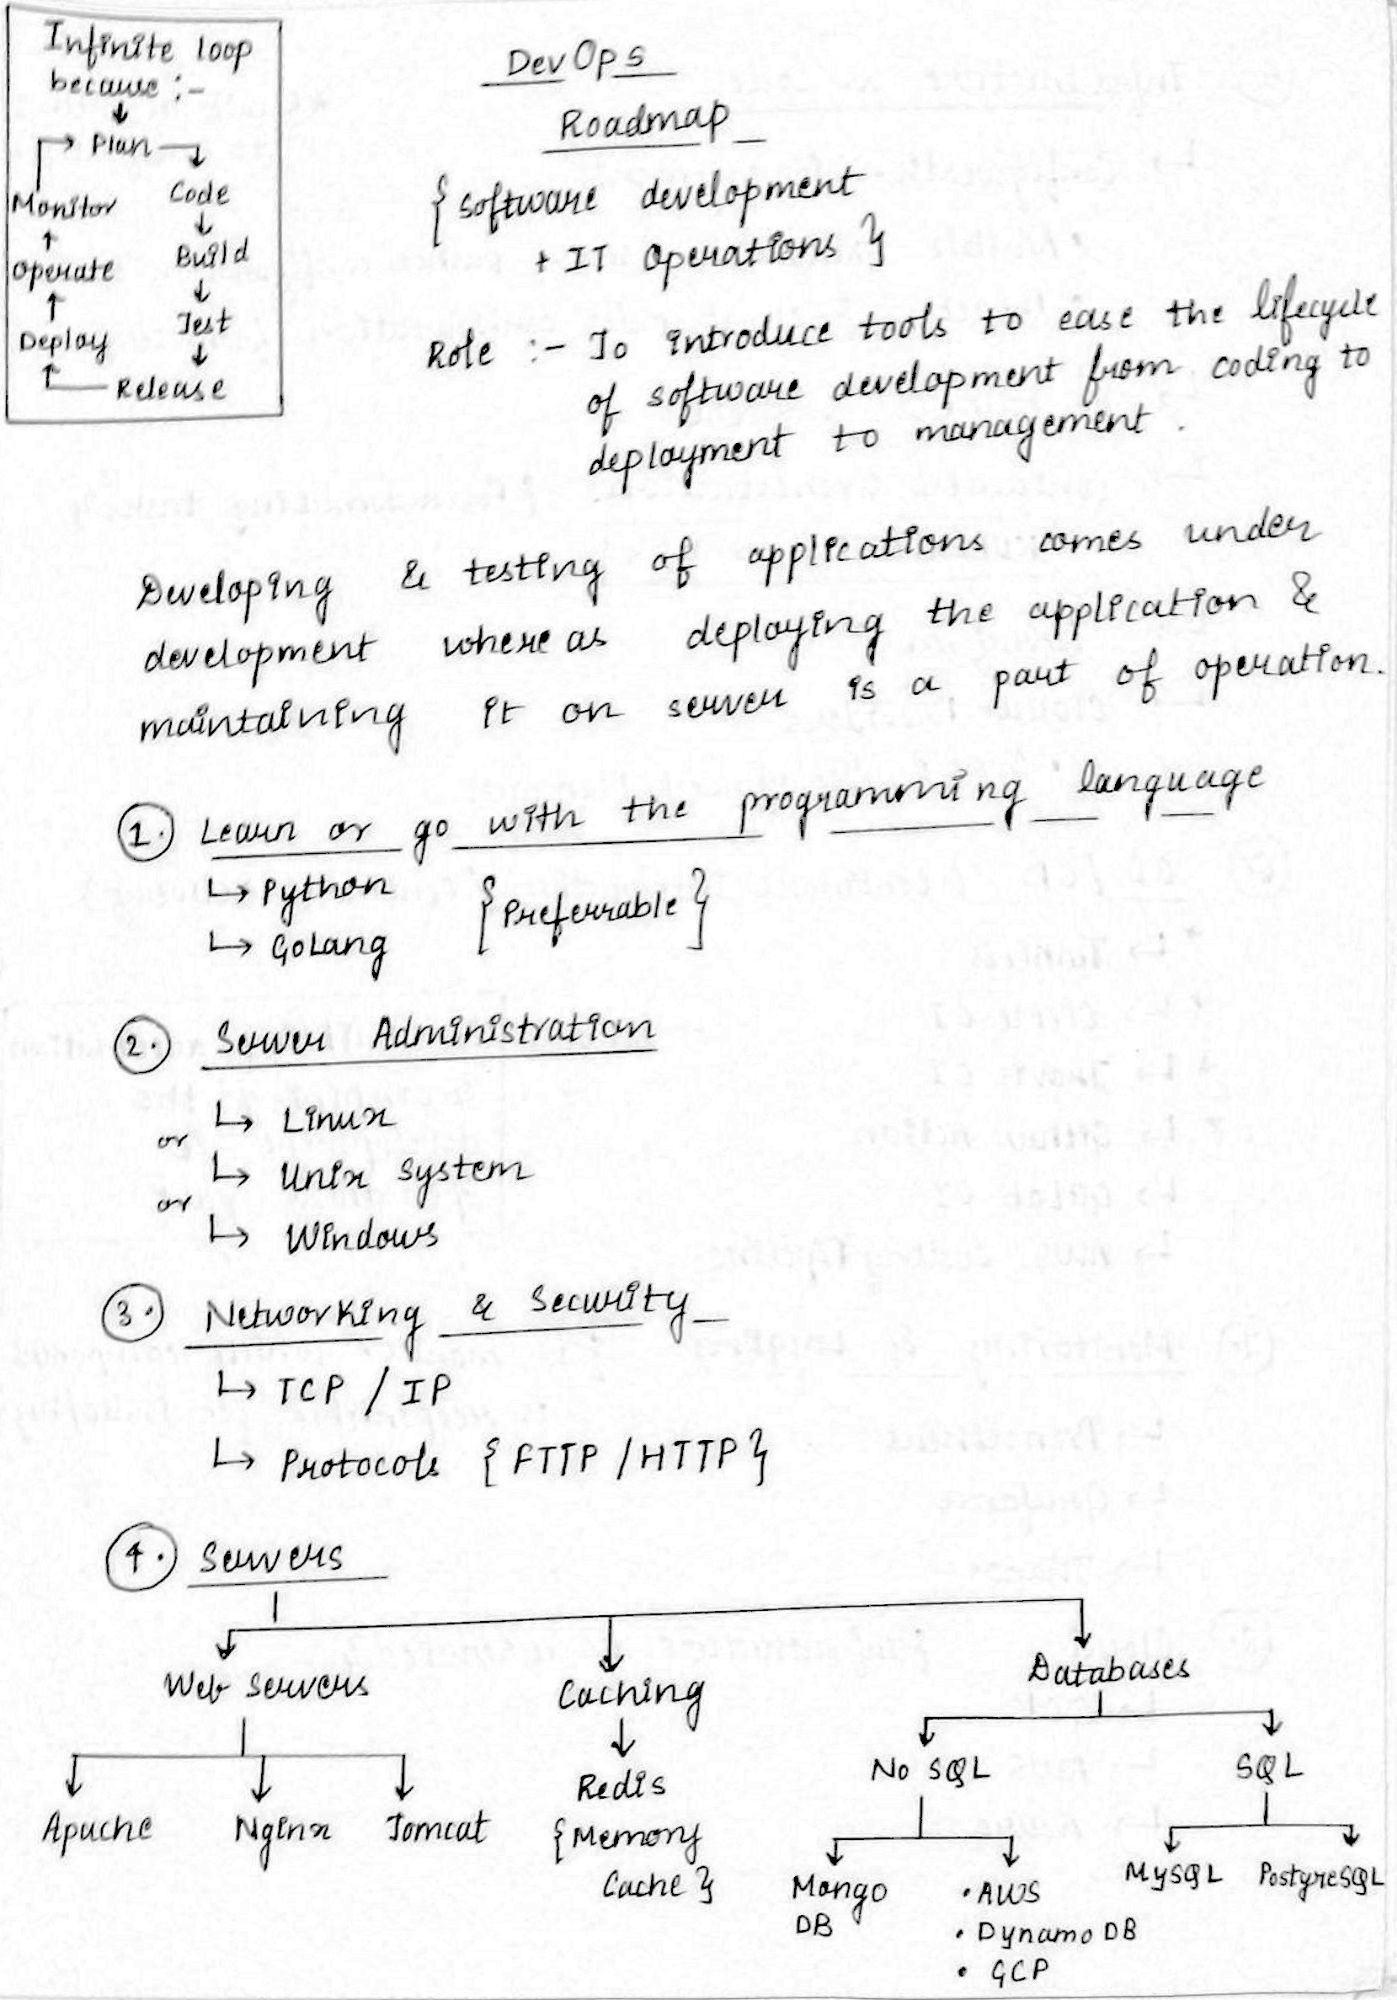 Infinite loop
because :-
↓
→ Plan →
Monitor Code
↑ ↓
Operate Build
↑ ↓
Deploy Test
↑ ↓
Release
DevOps
Roadmap
{ Software development
+ IT Operations }
Role :- To introduce tools to ease the lifecycle
of software development from coding to
deployment to management.
Developing & testing of applications comes under
development where as deploying the application &
maintaining it on server is a part of operation.
1. Learn or go with the programming language
↳ Python
↳ GoLang
{ Preferrable }
2. Server Administration
↳ Linux
or
↳ Unix System
or
↳ Windows
3. Networking & Security
↳ TCP / IP
↳ Protocols { FTTP / HTTP }
4. Servers
Web Servers Caching Databases
Apache Nginx Tomcat
Redis
{ Memory
Cache }
No SQL SQL
Mongo
DB
• AWS
• Dynamo DB
• GCP
MySQL PostgreSQL